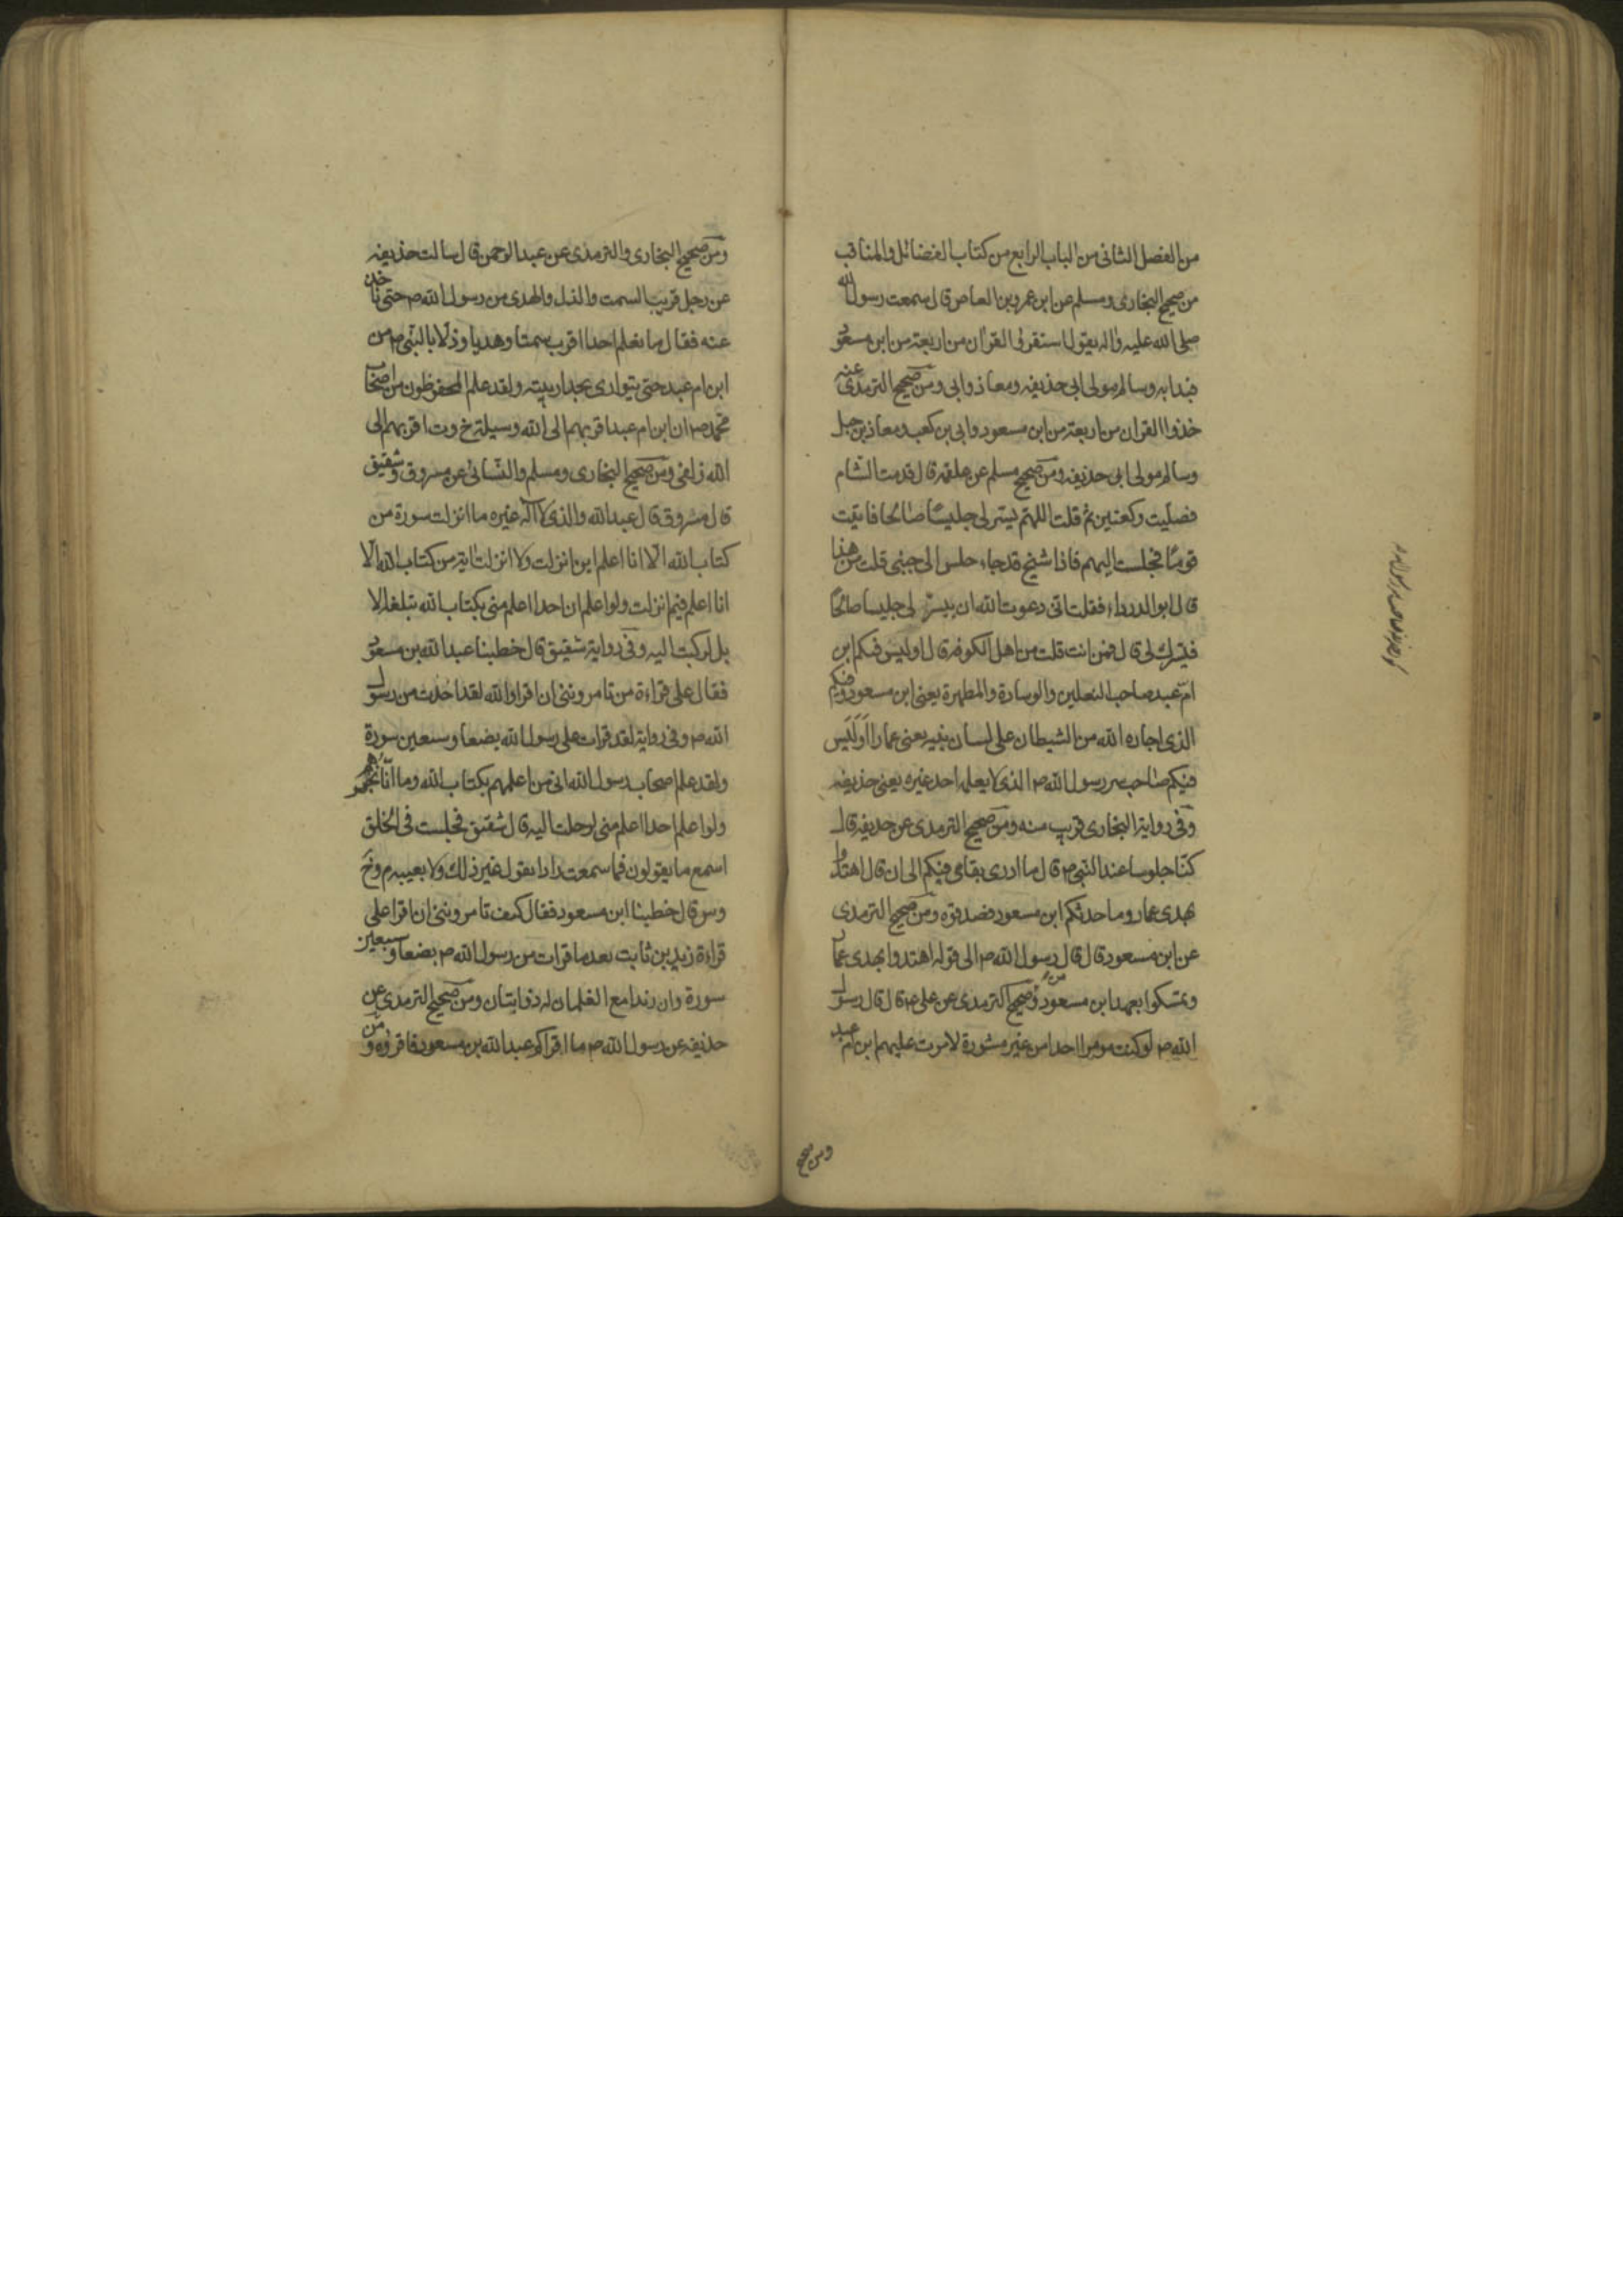 من الفصل الثانى من الباب الرابع من كتاب الفضائل والمناقب
من صحيح البخارى ومسلم عن ابن عمرو بن العاص قال سمعت رسول الله
صلى الله عليه واله يقول استقرؤا القران من اربعة من ابن مسعود
فبدا به وسالم مولى ابى حذيفه ومعاذ وابى ومن صحيح الترمذى عنه
خذوا القران من اربعة من ابن مسعود وابى بن كعب ومعاذ بن جبل
وسالم مولى ابى حذيفه ومن صحيح مسلم عن علقمه قال قدمت الشام
فصليت ركعتين ثم قلت اللهم يسر لى جليسا صالحا فاتيت
قوما فجلست اليهم فاذا شيخ قد جاء جلس الى جنبى قلت من هذا
قال ابو الدرداء فقلت انى دعوت الله ان ييسر لى جليسا صالحا
فيسرك لى قال فمن انت قلت من اهل الكوفه قال اوليس فيكم ابن
ام عبد صاحب النعلين والوسادة والمطهرة يعنى ابن مسعود وفيكم
الذى اجاره الله من الشيطان على لسان نبيه يعنى عمارا اوليس
فيكم صاحب سر رسول الله ص الذى لا يعلمه احد غيره يعنى حذيفه
وفى رواية البخارى قريب منه ومن صحيح الترمذى عن حذيفه قال
كنا جلوسا عند النبى ص قال ما ادرى بقاى فيكم الى ان قال اهتدوا
بهدى عمار وما حدثكم ابن مسعود فصدقوه ومن صحيح الترمذى
عن ابن مسعود قال قال رسول الله ص الى قوله اهتدوا بهدى عمار
وتمسكوا بعهد ابن مسعود ومن صحيح الترمذى عن على ع قال قال رسول
الله ص لو كنت مومرا احدا من غير مشورة لامرت عليهم ابن ام عبد
ومن صحيح
ومن صحيح البخارى والترمذى عن عبد الرحمن قال سالت حذيفه
عن رجل قريب السمت والدل والهدى من رسول الله ص حتى ناخذ
عنه فقال ما نعلم احدا اقرب سمتا وهديا ودلا بالنبى ص من
ابن ام عبد حتى يتوارى بجدار بيته ولقد علم المحفوظون من اصحاب
محمد ص ان ابن ام عبد اقربهم الى الله وسيلة خ وت اقربهم الى
الله زلفى ومن صحيح البخارى ومسلم والنسائى عن مسروق وشقيق
قال مسروق قال عبد الله والذى لا اله غيره ما انزلت سورة من
كتاب الله الا انا اعلم اين انزلت ولا انزلت اية من كتاب الله الا
انا اعلم فيم انزلت ولو اعلم ان احدا اعلم منى بكتاب الله تبلغه الا
بل لركبت اليه وفى رواية شقيق قال خطبنا عبد الله بن مسعود
فقال على قراءة من تامروننى ان اقرا والله لقد اخذت من رسول
الله ص وفى رواية لقد قرات على رسول الله بضعا وسبعين سورة
ولقد علم اصحاب رسول الله انى من اعلمهم بكتاب الله وما انا بخيرهم
ولو اعلم احدا اعلم منى لرحلت اليه قال شقيق فجلست فى الحلق
اسمع ما يقولون فما سمعت رادا يقول غير ذلك ولا يعيبه م وخ
وس قال خطبنا ابن مسعود فقال كيف تامروننى ان اقرا على
قراءة زيد بن ثابت بعد ما قرات من رسول الله ص بضعا وسبعين
سورة وان زيدا مع الغلمان له ذوابتان ومن صحيح الترمذى عن
حذيفه عن رسول الله ص ما اقراكم عبد الله بن مسعود فاقروه ومن